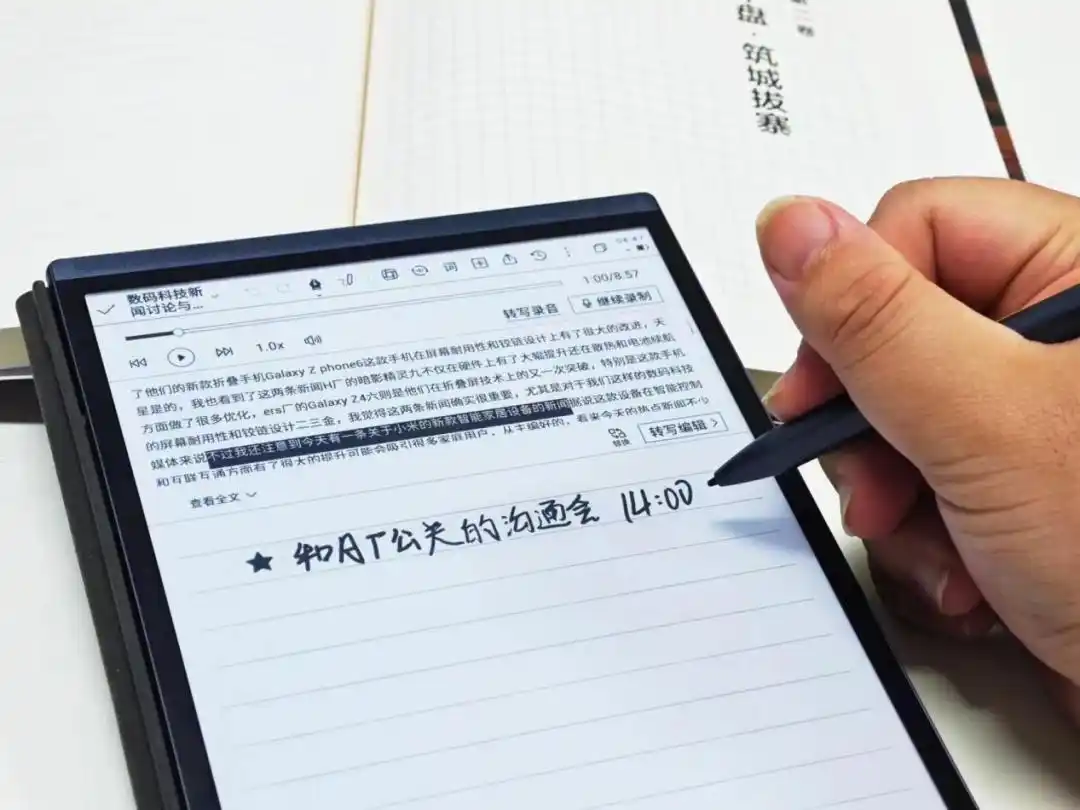 第二卷
盘·筑城拔寨
数码科技新
闻讨论与...
1:00/8:57
1.0x
转写录音
继续录制
了他们的新款折叠手机Galaxy Z phone6这款手机在屏幕耐用性和铰链设计上有了很大的改进，天
星是的，我也看到了这两条新闻H厂的暗影精灵九不仅在硬件上有了大幅提升还在散热和电池续航
方面做了很多优化，ers厂的Galaxy Z4六则是他们在折叠屏技术上的又一次突破，特别是这款手机
的屏幕耐用性和铰链设计二三金，我觉得这两条新闻确实很重要，尤其是对于我们这样的数码科技
媒体来说不过我还注意到今天有一条关于小米的新款智能家居设备的新闻据说这款设备在智能控制
和互联互通方面有了很大的提升可能会吸引很多家庭用户，从主编好的，看来今天的热点新闻不少
替换
转写编辑
查看全文
★ 和AT公关的沟通会 14:00